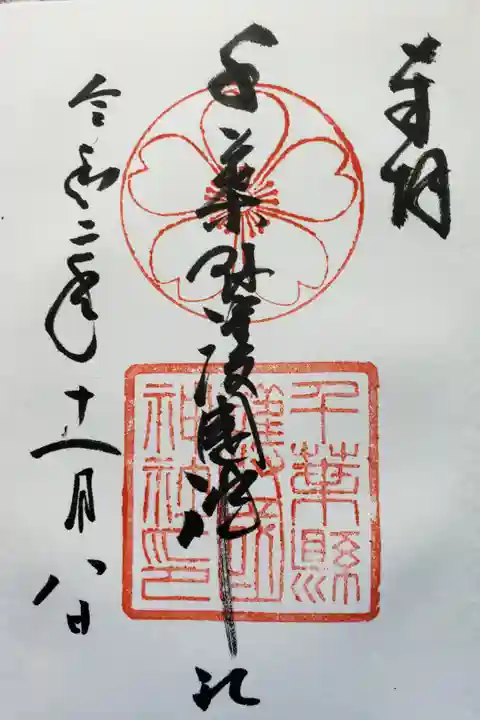 奉拝
千葉縣護國神社
令和二年十一月八日
千葉縣
護國
神社印